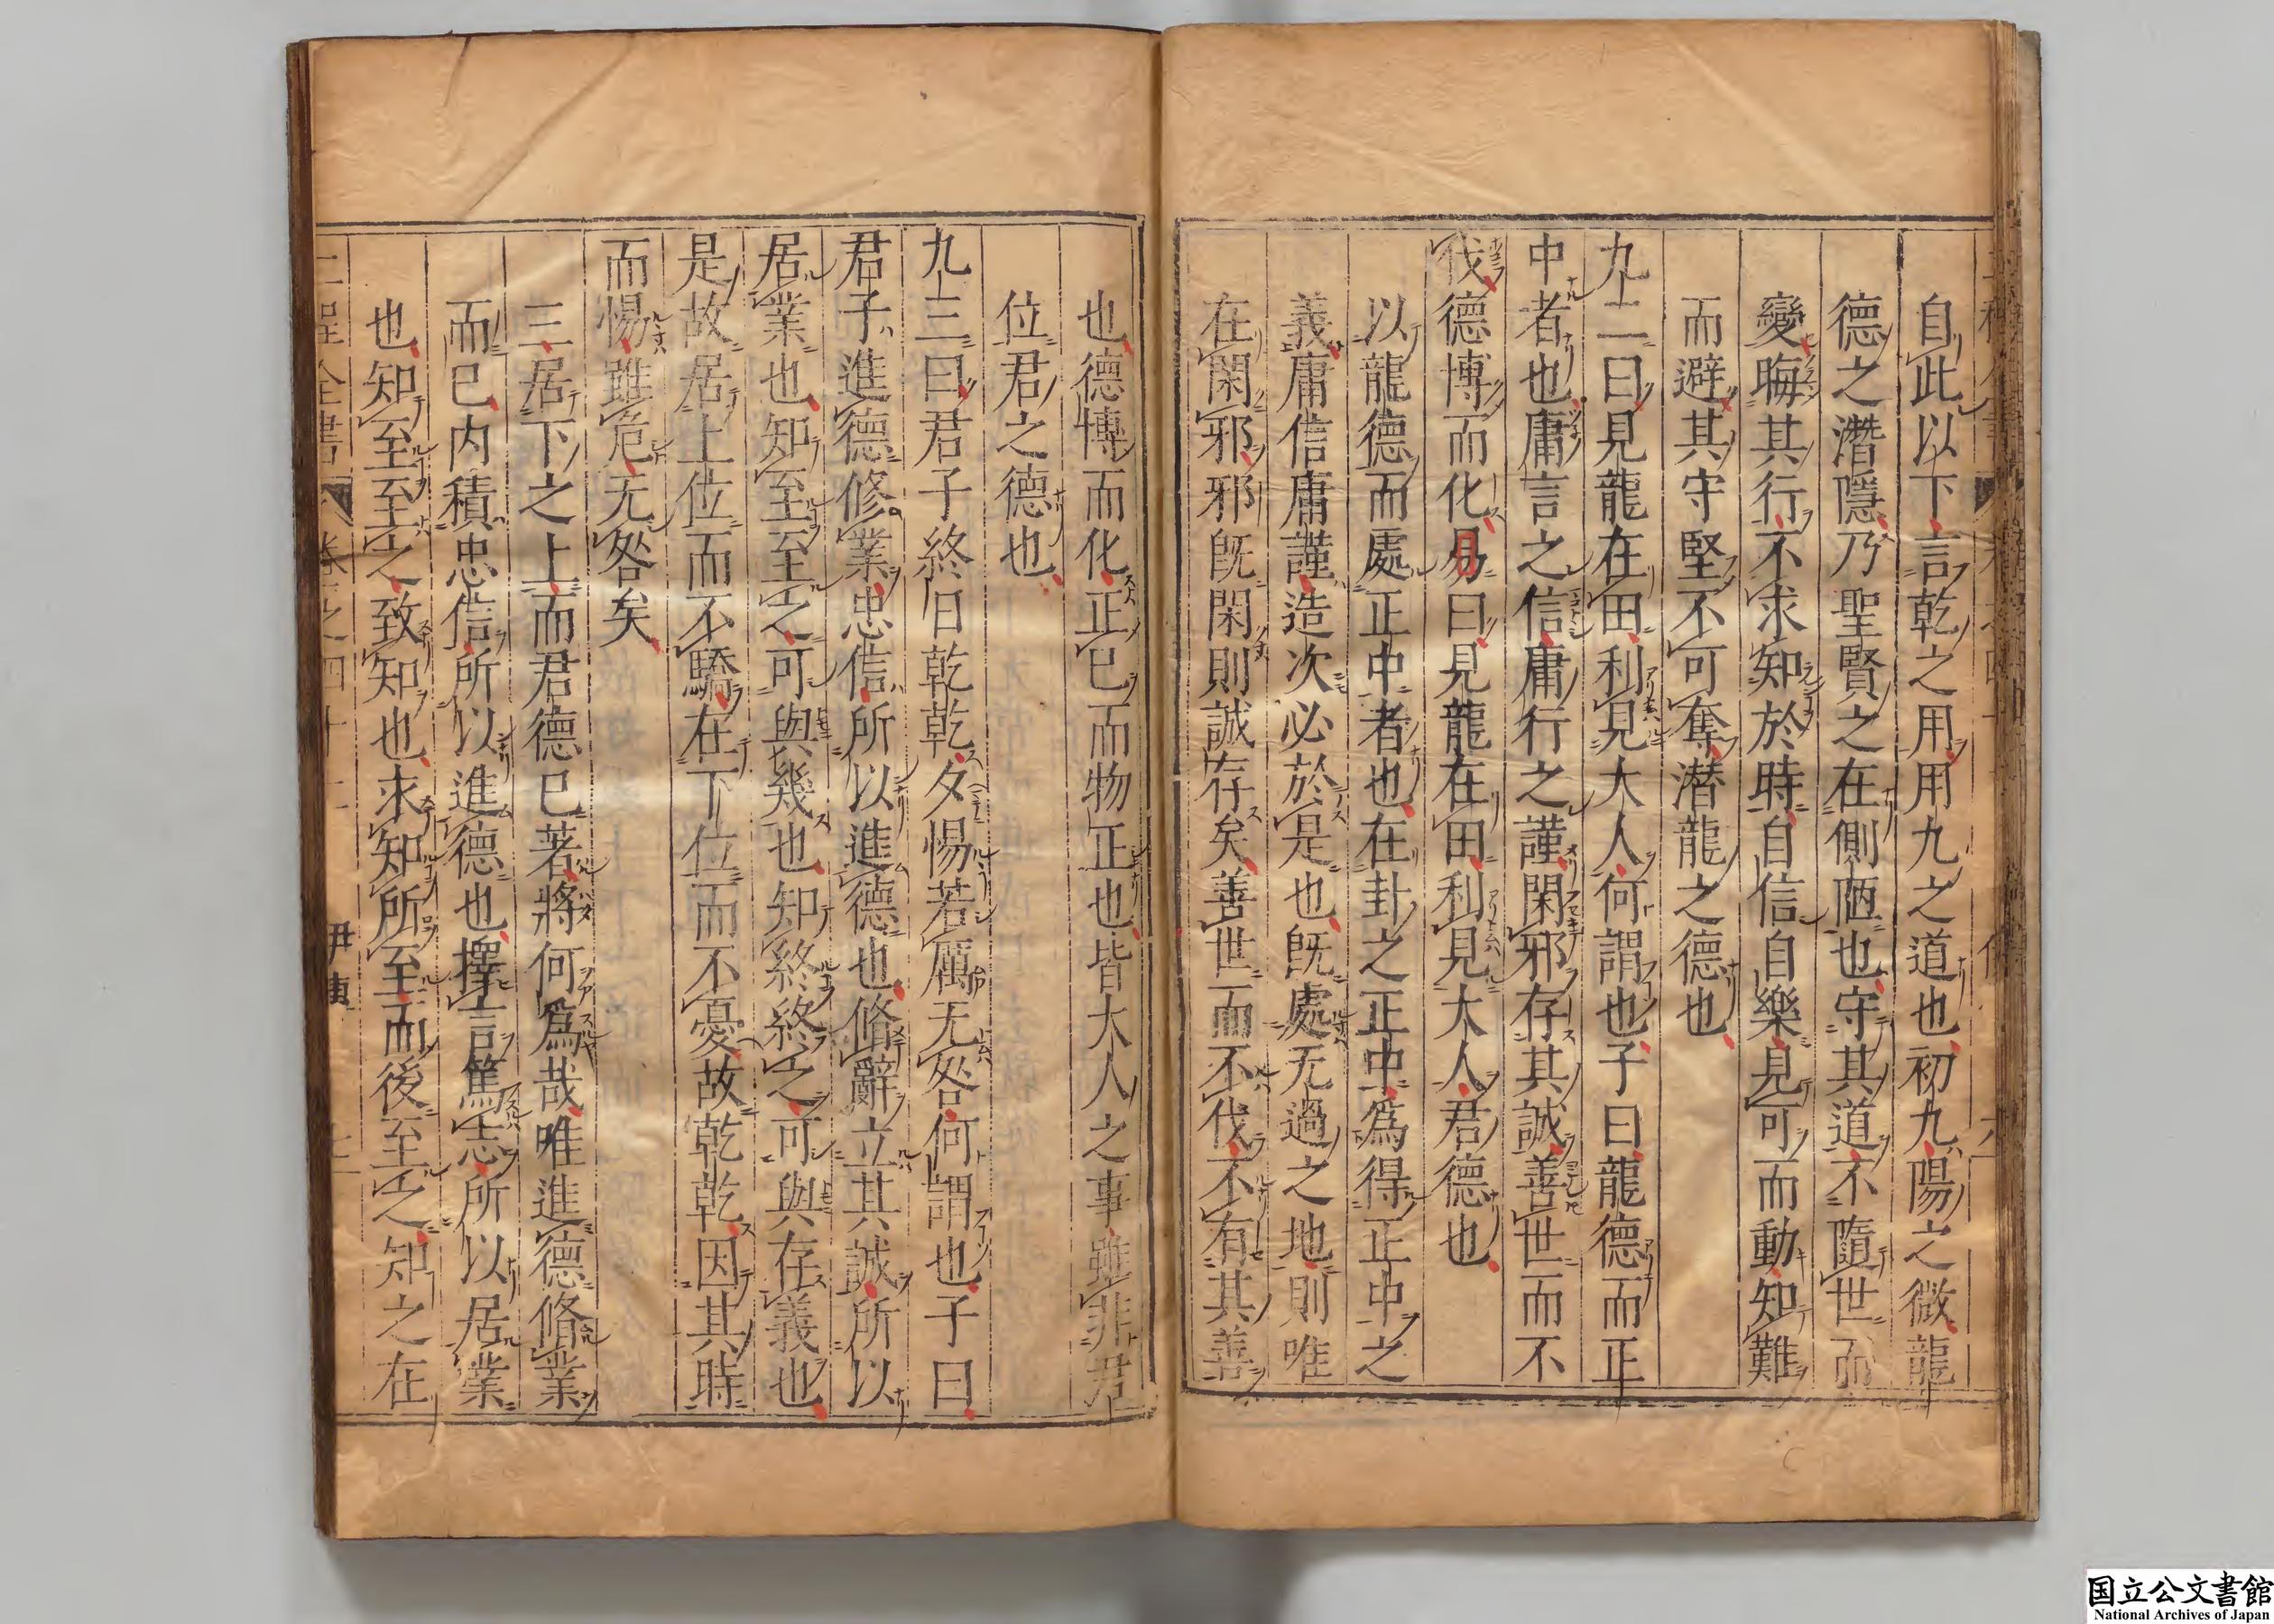 自此以下言乾之用用九之道也初九陽之微龍
德之潛隱乃聖賢之在側陋也守其道不隨世而
變晦其行不求知於時自信自樂見可而動知難
而避其守堅不可奪潜龍之德也
九二曰見龍在田利見大人何謂也子曰龍德而正
中者也庸言之信庸行之謹閑邪存其誠善世而不
伐德博而化易曰見龍在田利見大人君德也
以龍德而處正中者也在卦之正中為得正中之
義庸信庸謹造次必於是也旣處无過之地則唯
在閑邪邪旣閑則誠存矣善世而不伐不有其善
也德博而化正已而物正也皆大人之事雖非君
位君之德也
九三曰君子終日乾乾夕惕若厲无咎何謂也子曰
君子進德修業忠信所以進德也脩辭立其誠所以
居業也知至至之可與幾也知終終之可與存義也
是故居上位而不驕在下位而不憂故乾乾因其時
而惕雖危无咎矣
三居下之上而君德已著將何爲哉唯進德脩業
而已内積忠信所以進德也擇言篤志所以居業
也知至至之致知也求知所至而後至之知之在
二程全書 卷之四十二
国立公文書館
National Archives of Japan